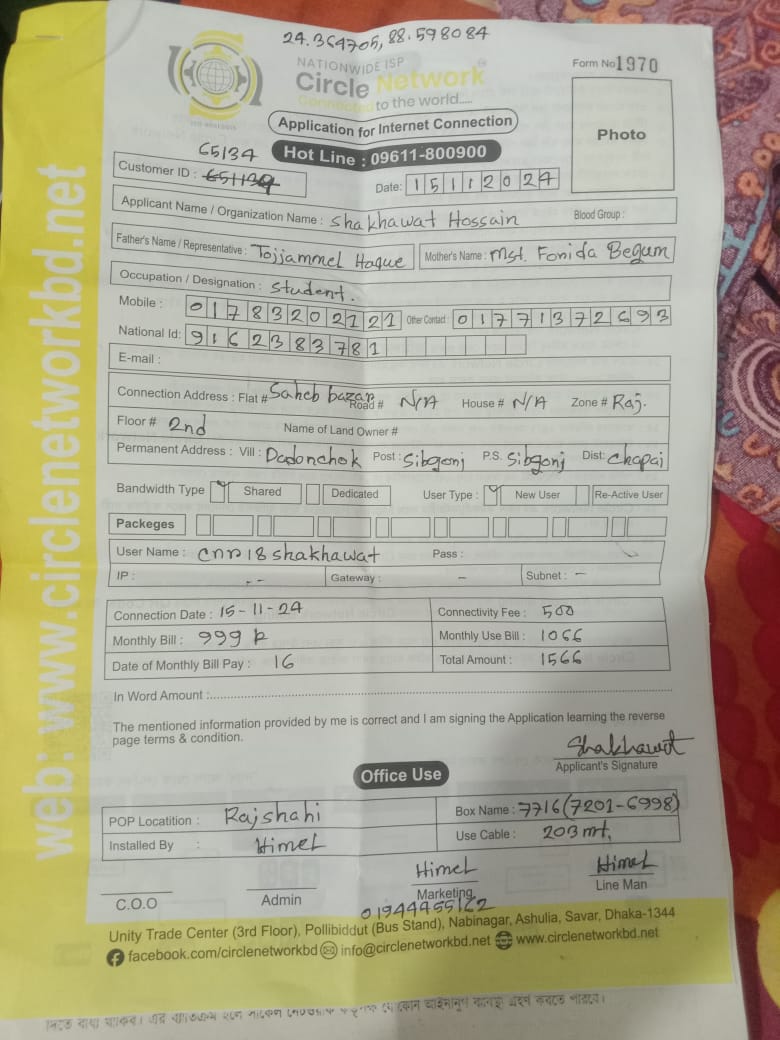 24.364705, 88.598084
NATIONWIDE ISP
Circle Network
Connected to the world.....
Form No 1970
Application for Internet Connection
Photo
Hot Line : 09611-800900
65134
Customer ID : 651139
Date: 15112024
Applicant Name / Organization Name : Shakhawat Hossain Blood Group :
Father's Name / Representative : Tojjammel Haque Mother's Name : Mst. Fonida Begum
Occupation / Designation : Student.
Mobile : 01783202121 Other Contact : 01771372693
National Id: 9162383781
E-mail :
Connection Address : Flat # Saheb bazar Road # N/A House # N/A Zone # Raj.
Floor # 2nd Name of Land Owner #
Permanent Address : Vill : Dadonchok Post : Sibgonj P.S. Sibgonj Dist: Chapai
Bandwidth Type Shared Dedicated User Type : New User Re-Active User
Packeges
User Name : cnn18shakhawat Pass :
IP : -- Gateway : - Subnet : -
Connection Date : 15-11-24 Connectivity Fee : 500
Monthly Bill : 999 Monthly Use Bill : 1066
Date of Monthly Bill Pay : 16 Total Amount : 1566
In Word Amount :
The mentioned information provided by me is correct and I am signing the Application learning the reverse
page terms & condition.
Shakhawat
Applicant's Signature
Office Use
POP Locatition : Rajshahi Box Name : 7716(7201-6998)
Installed By : Himel Use Cable : 203 mt.
Himel Himel
C.O.O Admin Marketing Line Man
01944455162
Unity Trade Center (3rd Floor), Pollibiddut (Bus Stand), Nabinagar, Ashulia, Savar, Dhaka-1344
facebook.com/circlenetworkbd info@circlenetworkbd.net www.circlenetworkbd.net
web: www.circlenetworkbd.net